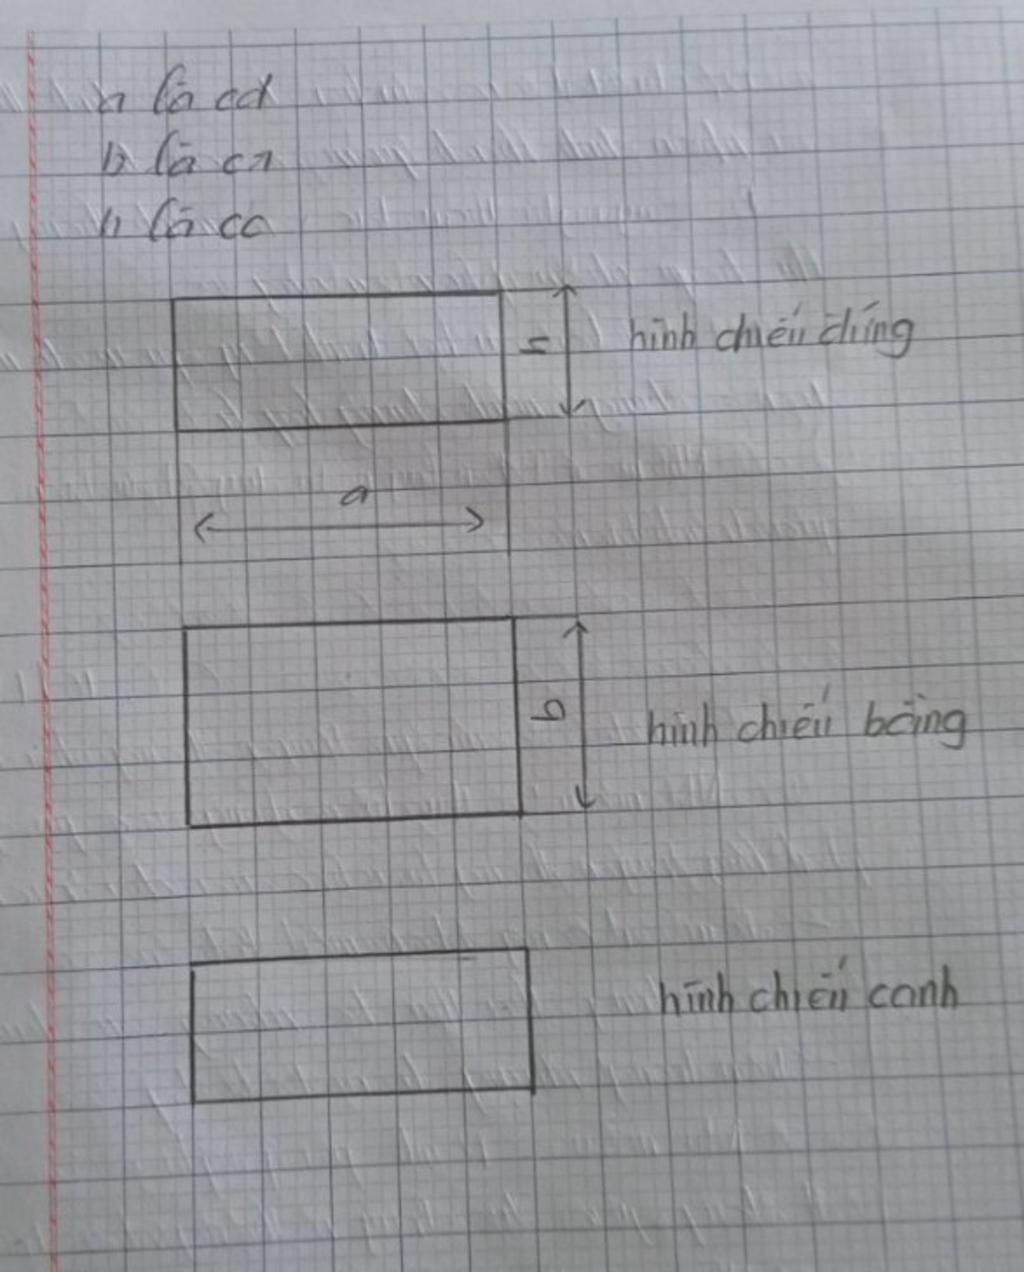 a là cd
b là cr
h là cc
h
hình chiếu đứng
a
b
hình chiếu bằng
hình chiếu cạnh